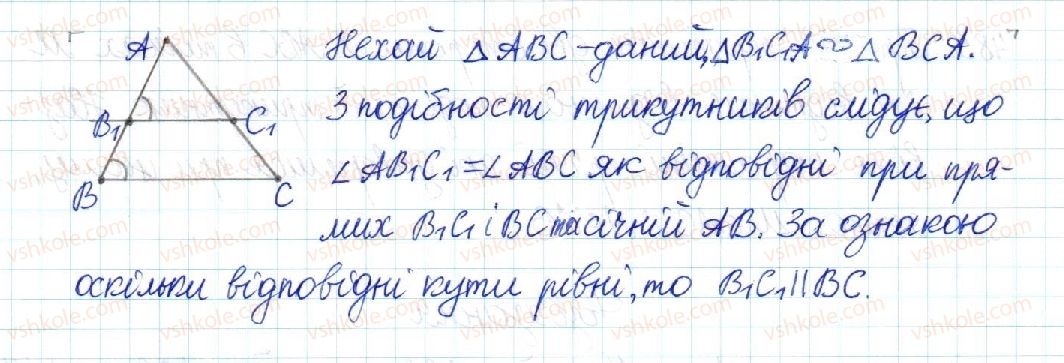 Нехай △ABC-даний, △B₁C₁A∾△BCA.
A
З подібності трикутників слідує, що
B₁ C₁
∠AB₁C₁=∠ABC як відповідні при пря-
B C
мих B₁C₁ і BC та січній AB. За ознакою
оскільки відповідні кути рівні, то B₁C₁||BC.
vshkole.com